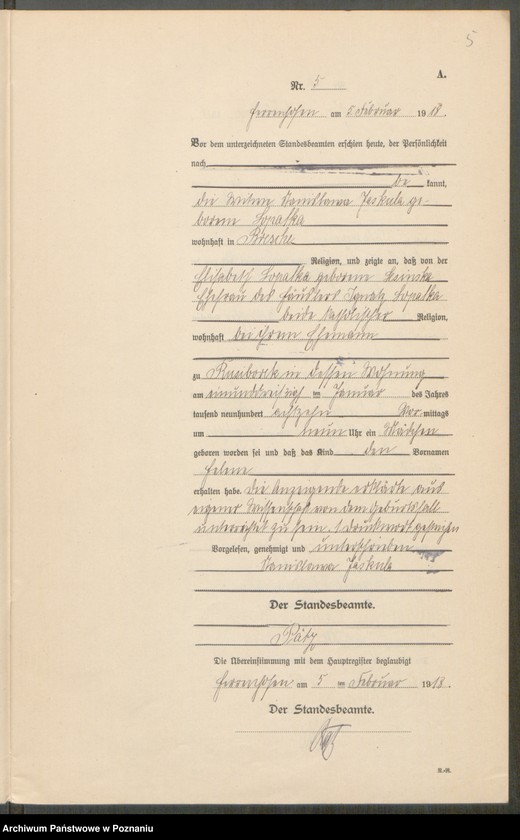 5
A.
Nr. 5
Herrenhofen am 5. Februar 1918.
Vor dem unterzeichneten Standesbeamten erschien heute, der Persönlichkeit
nach
be kannt,
die Witwe Stanislawa Jaskula ge-
borene Lopatka
wohnhaft in
Religion, und zeigte an, daß von der
Elisabeth Lopatka geborene
Ehefrau des Häuslers Ignatz Lopatka
beide katholischer Religion,
wohnhaft bei ihrem Ehemann
zu in dessen Wohnung
am einunddreißig ten Januar des Jahres
tausend neunhundert achtzehn Vor mittags
um neun Uhr ein Mädchen
geboren worden sei und daß das Kind den Vornamen
Helene
erhalten habe. Die Anzeigende erklärte aus
eigener Wissenschaft von dem Geburtsfall
unterrichtet zu sein. 1 Druckwort gestrichen
Vorgelesen, genehmigt und unterschrieben
Stanislawa Jaskula
Der Standesbeamte.
Die Übereinstimmung mit dem Hauptregister beglaubigt
Herrenhofen am 5 ten Februar 1918.
Der Standesbeamte.
R.-R.
Archiwum Państwowe w Poznaniu